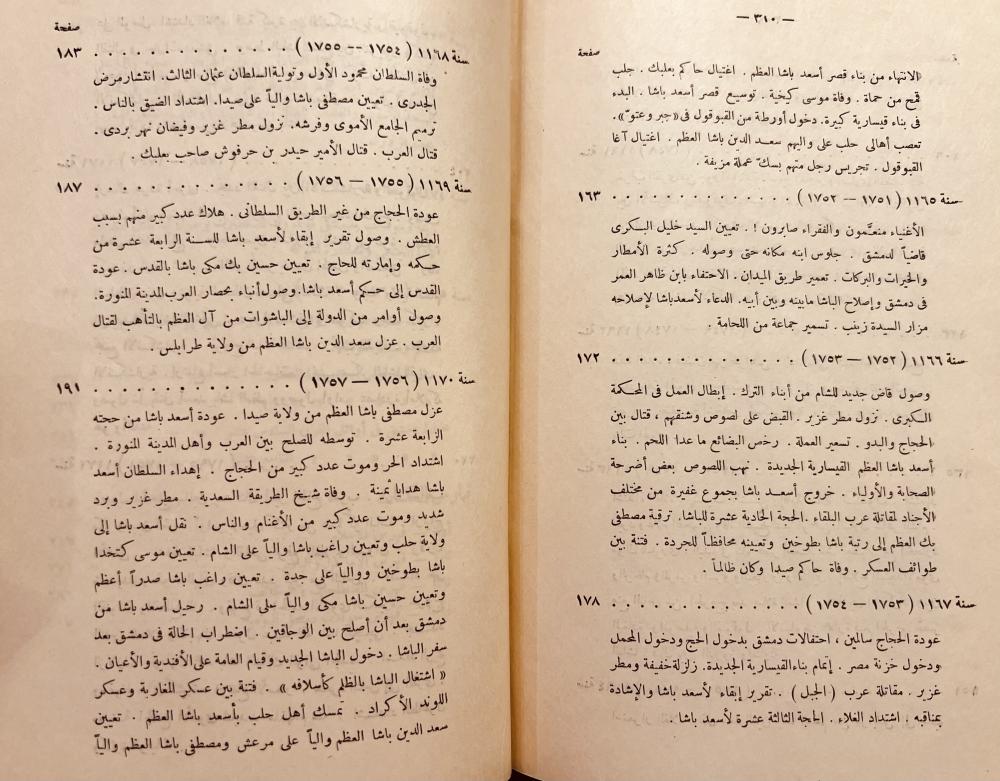 — ٣١٠ —
صفحة
الانتهاء من بناء قصر أسعد باشا العظم . اغتيال حاكم بعلبك . جلب
قمح من حماة . وفاة موسى كيخية . توسيع قصر أسعد باشا . البدء
فى بناء قيسارية كبيرة. دخول أورطة من القبوقول فى «جبر وعتو».
تعصب أهالى حلب على واليهم سعد الدين باشا العظم . اغتيال آغا
القبوقول . تجريس رجل متهم بسك عملة مزيفة .
سنة ١١٦٥ ( ١٧٥١ — ١٧٥٢ ) . . . . . . . . . . . . . ١٦٣
الأغنياء منعَّمون والفقراء صابرون ! . تعيين السيد خليل البكرى
قاضياً لدمشق . جلوس ابنه مكانه حتى وصوله . كثرة الأمطار
والخيرات والبركات . تعمير طريق الميدان . الاحتفاء بابن ظاهر العمر
فى دمشق وإصلاح الباشا مابينه وبين أبيه. الدعاء لأسعدباشا لإصلاحه
مزار السيدة زينب . تسمير جماعة من اللحامة .
سنة ١١٦٦ ( ١٧٥٢ — ١٧٥٣ ) . . . . . . . . . . . . . ١٧٢
وصول قاض جديد للشام من أبناء الترك . إبطال العمل فى المحكمة
الكبرى . نزول مطر غزير . القبض على لصوص وشنقهم ، قتال بين
الحجاج والبدو . تسعير العملة . رخص البضائع ما عدا اللحم . بناء
أسعد باشا العظم القيسارية الجديدة . نهب اللصوص بعض أضرحة
الصحابة والأولياء . خروج أسعد باشا بجموع غفيرة من مختلف
الأجناد لمقاتلة عرب البلقاء. الحجة الحادية عشرة للباشا. ترقية مصطفى
بك العظم إلى رتبة باشا بطوخين وتعيينه محافظاً للجردة . فتنة بين
طوائف العسكر . وفاة حاكم صيدا وكان ظالماً .
سنة ١١٦٧ ( ١٧٥٣ — ١٧٥٤ ) . . . . . . . . . . . . . ١٧٨
عودة الحجاج سالمين ، احتفالات دمشق بدخول الحج ودخول المحمل
ودخول خزنة مصر . إتمام بناء القيسارية الجديدة. زلزلة خفيفة ومطر
غزير . مقاتلة عرب ( الجبل ) . تقرير إبقاء لأسعد باشا والإشادة
بمناقبه . اشتداد الغلاء . الحجة الثالثة عشرة لأسعد باشا .
صفحة
سنة ١١٦٨ ( ١٧٥٤ -- ١٧٥٥ ) . . . . . . . . . . . . . ١٨٣
وفاة السلطان محمود الأول وتولية السلطان عثمان الثالث. انتشار مرض
الجدرى . تعيين مصطفى باشا والياً على صيدا. اشتداد الضيق بالناس .
ترميم الجامع الأموى وفرشه. نزول مطر غزير وفيضان نهر بردى .
قتال العرب . قتال الأمير حيدر بن حرفوش صاحب بعلبك .
سنة ١١٦٩ ( ١٧٥٥ — ١٧٥٦ ) . . . . . . . . . . . . . ١٨٧
عودة الحجاج من غير الطريق السلطانى . هلاك عدد كبير منهم بسبب
العطش . وصول تقرير إبقاء لأسعد باشا للسنة الرابعة عشرة من
حكمه وإمارته للحاج . تعيين حسين بك مكى باشا بالقدس . عودة
القدس إلى حكم أسعد باشا. وصول أنباء بحصار العرب المدينة المنورة.
وصول أوامر من الدولة إلى الباشوات من آل العظم بالتأهب لقتال
العرب . عزل سعد الدين باشا العظم من ولاية طرابلس .
سنة ١١٧٠ ( ١٧٥٦ — ١٧٥٧ ) . . . . . . . . . . . . . ١٩١
عزل مصطفى باشا العظم من ولاية صيدا . عودة أسعد باشا من حجته
الرابعة عشرة . توسطه للصلح بين العرب وأهل المدينة المنورة .
اشتداد الحر وموت عدد كبير من الحجاج . إهداء السلطان أسعد
باشا هدايا ثمينة . وفاة شيخ الطريقة السعدية . مطر غزير وبرد
شديد وموت عدد كبير من الأغنام والناس . نقل أسعد باشا إلى
ولاية حلب وتعيين راغب باشا والياً على الشام . تعيين موسى كتخدا
باشا بطوخين ووالياً على جدة . تعيين راغب باشا صدراً أعظم
وتعيين حسين باشا مكى والياً على الشام . رحيل أسعد باشا من
دمشق بعد أن أصلح بين الوجاقين . اضطراب الحالة فى دمشق بعد
سفر الباشا . دخول الباشا الجديد وقيام العامة على الأفندية والأعيان .
« اشتغال الباشا بالظلم كأسلافه » . فتنة بين عسكر المغاربة وعسكر
اللوند الأكراد . تمسك أهل حلب بأسعد باشا العظم . تعيين
سعد الدين باشا العظم والياً على مرعش ومصطفى باشا العظم والياً